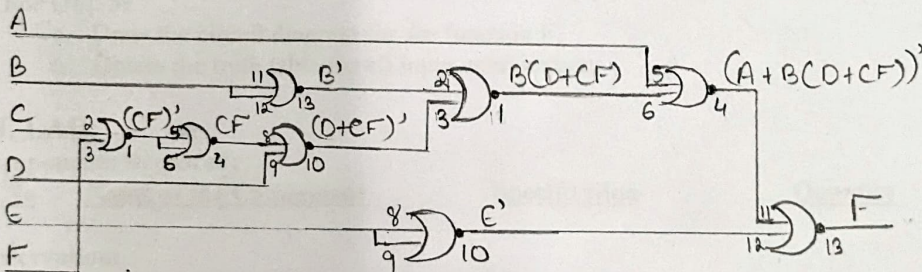 A
B
C
D
E
F
11
12
13
B'
2
3
1
(CF)'
5
6
4
CF
8
9
10
(D+CF)'
2
3
1
B(D+CF)
5
6
4
(A+B(D+CF))'
8
9
10
E'
11
12
13
F